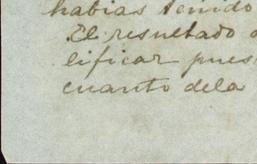 habias tenido
El resultado
lificar pues
cuanto dela